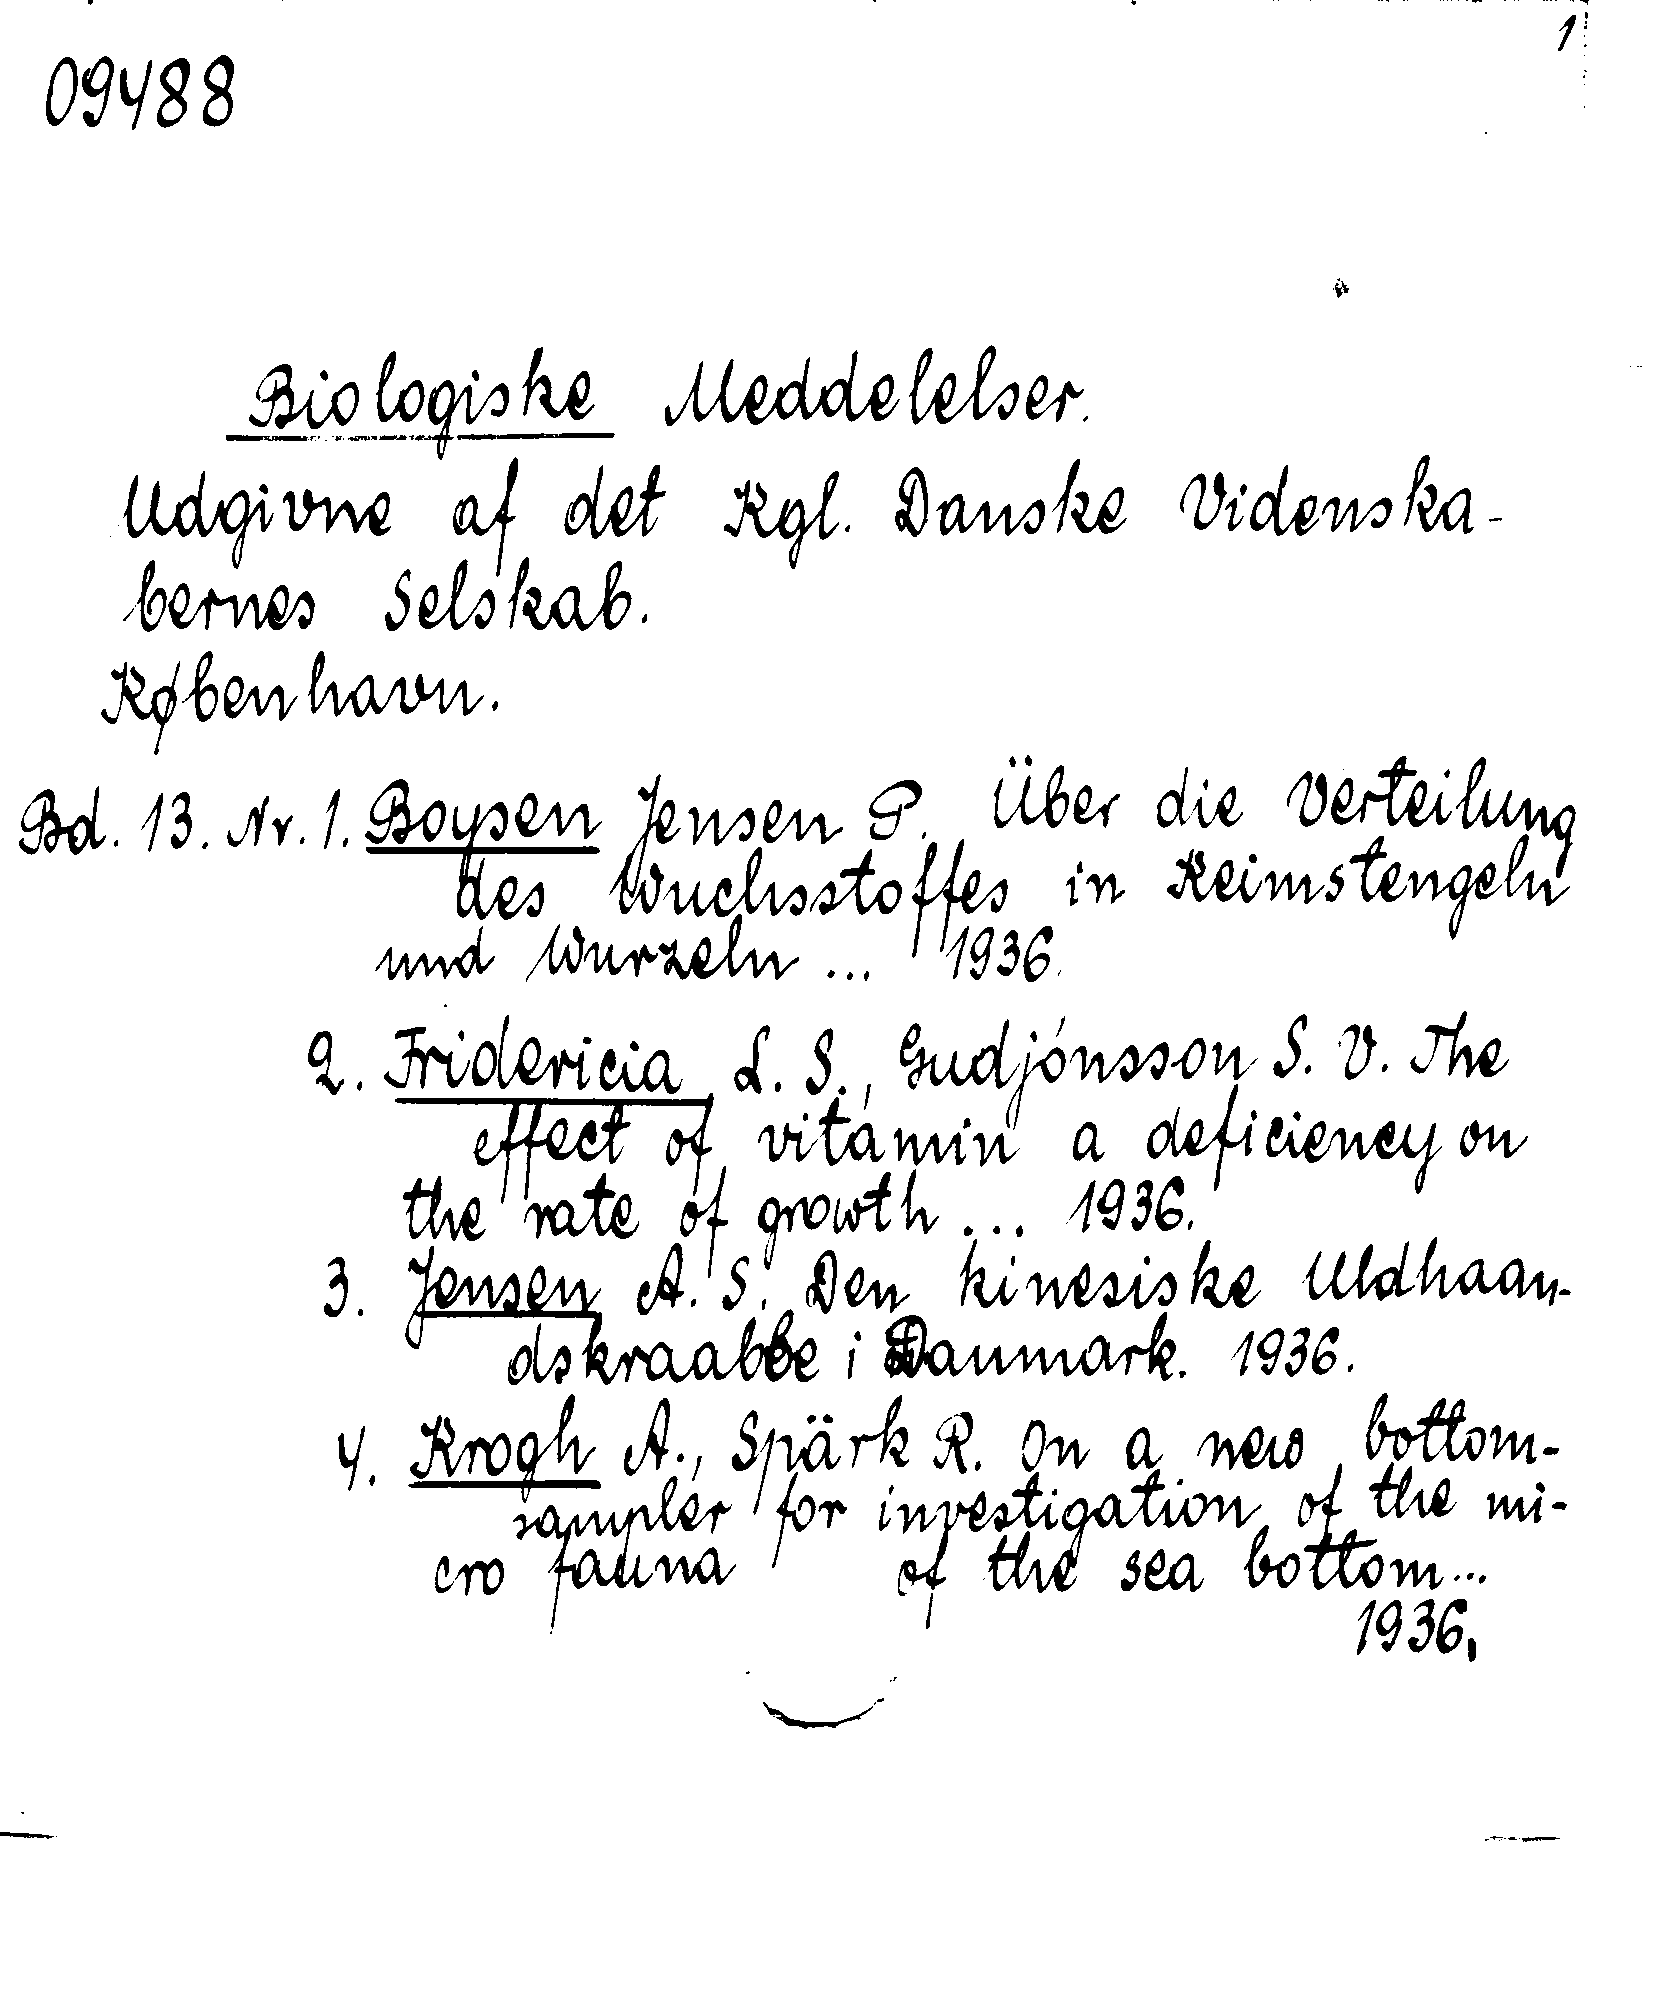 1
09488
Biologiske Meddelelser.
Udgivne af det Kgl. Danske Videnska-
bernes Selskab.
København.
Bd. 13. Nr. 1. Boysen Jensen P. Über die Verteilung
des Wuchsstoffes in Keimstengeln
und Wurzeln ... 1936.
2. Fridericia L. S., Gudjónsson S. V. The
effect of vitamin a deficiency on
the rate of growth ... 1936.
3. Jensen A. S. Den kinesiske Uldhaan-
dskraabbe i Danmark. 1936.
4. Krogh A., Spärk R. On a new bottom-
sampler for investigation of the mi-
cro fauna of the sea bottom...
1936.